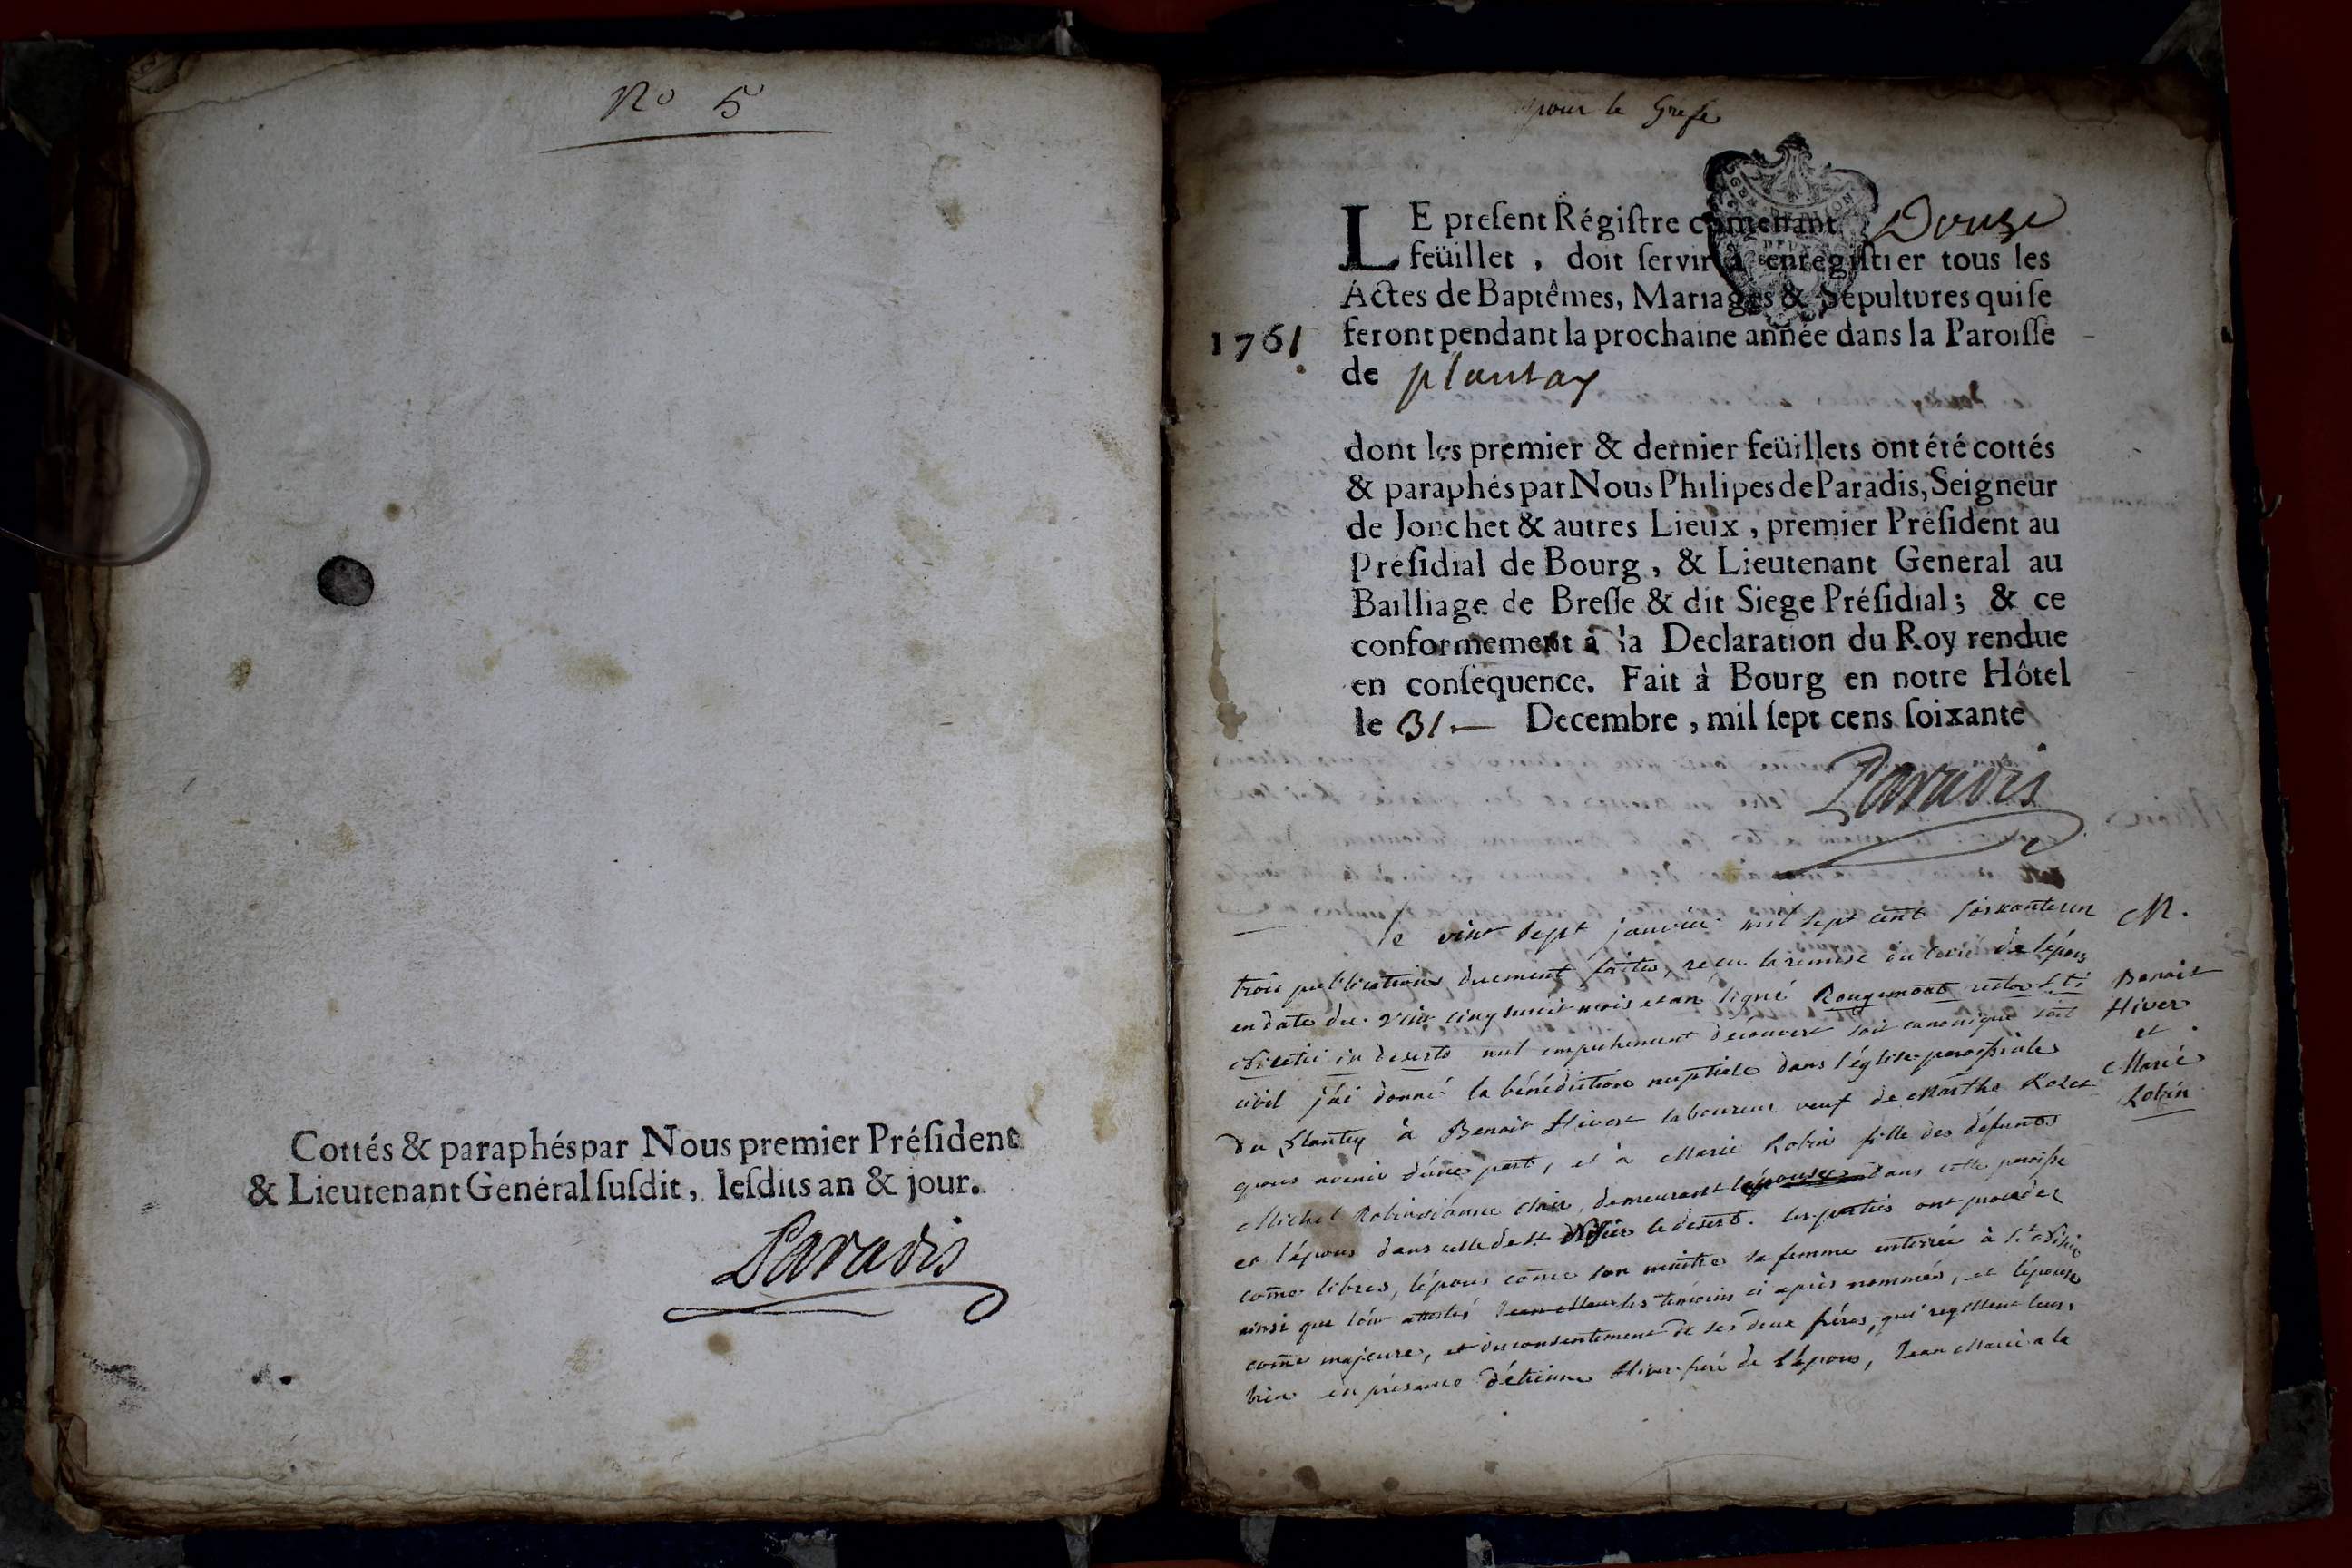 No 5
Cottés & paraphés par Nous premier Préſident
& Lieutenant Général ſuſdit, leſdits an & jour.
Paradis
pour le Grefe
LE preſent Régiſtre contenant Douze
feüillet , doit ſervir à enregiſtrer tous les
Actes de Baptêmes, Mariages & Sépultures qui ſe
1761 feront pendant la prochaine année dans la Paroiſſe
de plantay
dont les premier & dernier feüillets ont été cottés
& paraphés par Nous Philipes de Paradis, Seigneur
de Jonchet & autres Lieux , premier Préſident au
Préſidial de Bourg , & Lieutenant General au
Bailliage de Breſſe & dit Siege Préſidial ; & ce
conformement à la Declaration du Roy rendue
en conſéquence. Fait à Bourg en notre Hôtel
le 31 — Decembre , mil ſept cens ſoixante
Paradis
le vint sept janvier mil sept cent soixante un
trois publications duement faites, recu la remise du curé de l'épous
en date du vint cinq susdit mois et an signé Rougemont rector Sti
Nicetii in deserto nul empechement decouvert soit canonique soit
civil j'ai donné la bénédiction nuptiale dans l'église paroissiale
du plantey à Benoit Hiver laboureur veuf de Marthe
d'une part, et à Marie Robin fille des défunts
Michel Robin demeurant l'épouse dans cette paroisse
et l'épous dans celle de St Nisier le desert. les parties ont procedez
come libres, l'épous come son maitre sa femme enterrée à St Nisier
ainsi que l'ont attesté les témoins ci après nommés, et l'épouse
come majeure, et du consentement de ses deux fréres, qui regissent leurs
bien en présence d'étienne Hiver frére de l'épous, Jean Marie a la
M.
Benoit
Hiver
et
Marie
Robin